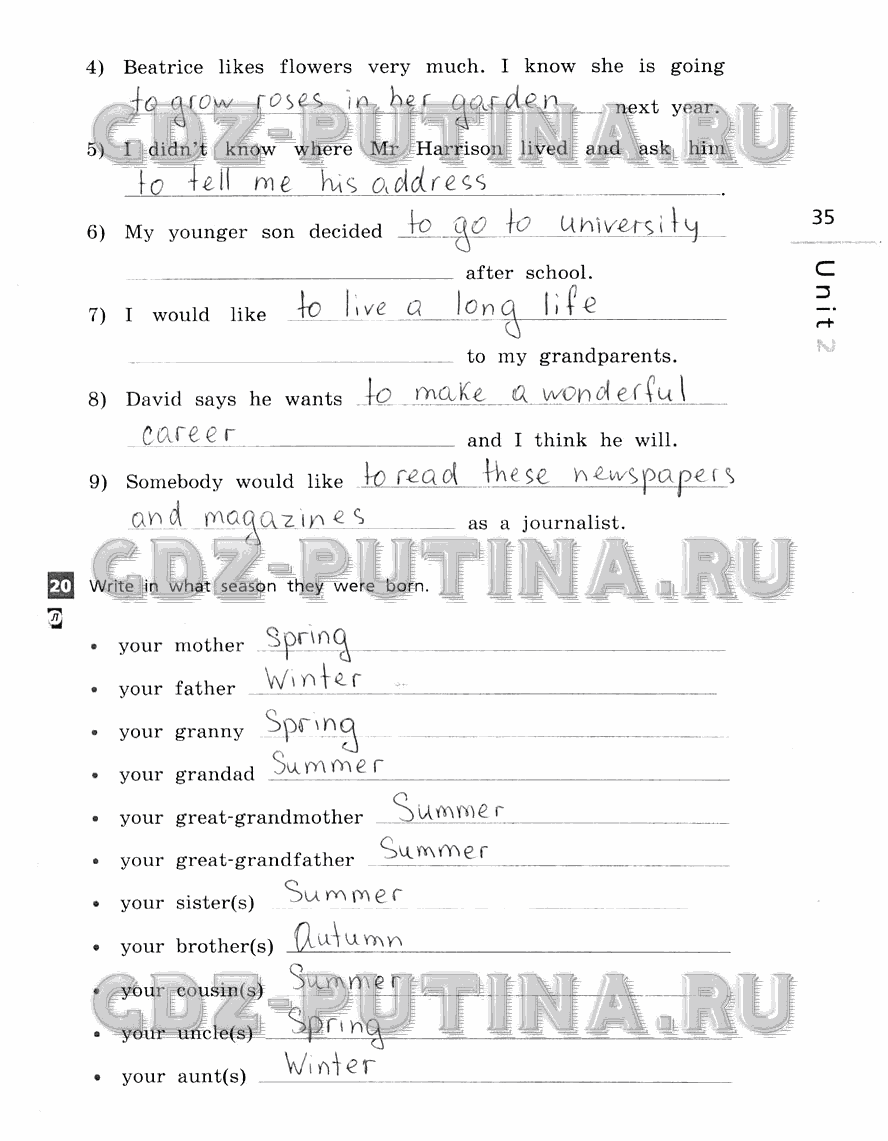 4) Beatrice likes flowers very much. I know she is going
to grow roses in her garden next year.
GDZ-PUTINA.RU
5) I didn't know where Mr Harrison lived and ask him
to tell me his address.
35
6) My younger son decided to go to university
after school.
Unit 2
7) I would like to live a long life
to my grandparents.
8) David says he wants to make a wonderful
career and I think he will.
9) Somebody would like to read these newspapers
and magazines as a journalist.
GDZ-PUTINA.RU
20 Write in what season they were born.
Л
• your mother Spring
• your father Winter
• your granny Spring
• your grandad Summer
• your great-grandmother Summer
• your great-grandfather Summer
• your sister(s) Summer
• your brother(s) Autumn
• your cousin(s) Summer
GDZ-PUTINA.RU
• your uncle(s) Spring
• your aunt(s) Winter